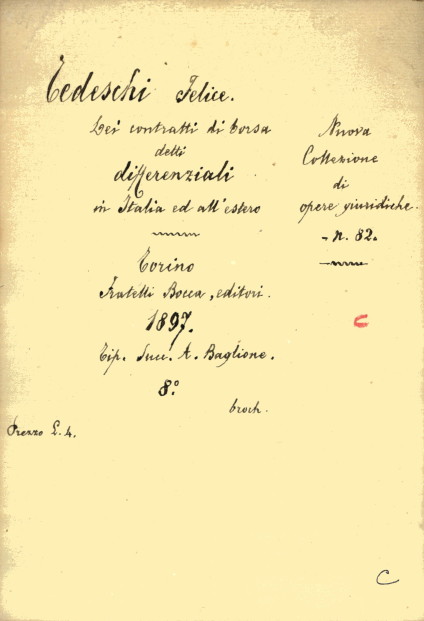 Tedeschi Felice.
Dei contratti di borsa
detti
differenziali
in Italia ed all'estero
Torino
Fratelli Bocca, editori.
1897.
Tip. Succ. A. Baglione.
8.°
broch.
Prezzo L. 4.
Nuova
Collezione
di
opere giuridiche.
- n. 82.
C
C